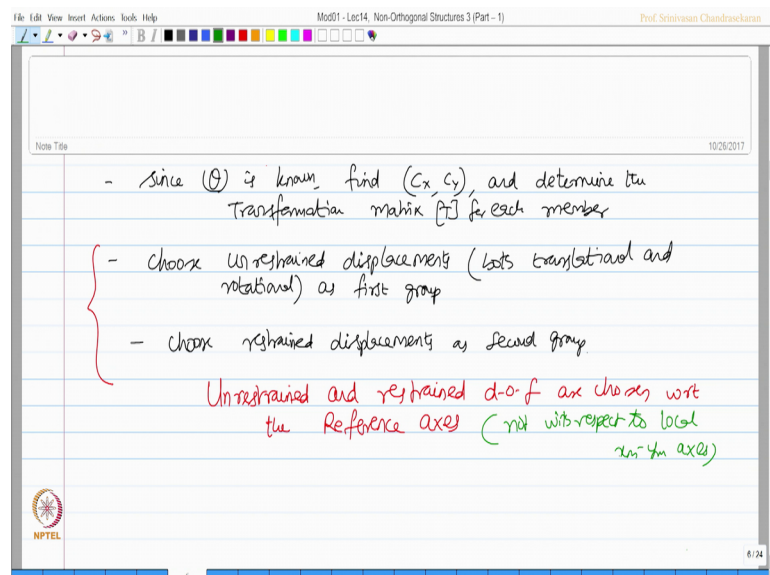 File Edit View Insert Actions Tools Help
Mod01 - Lec14, Non-Orthogonal Structures 3 (Part – 1)
Prof. Srinivasan Chandrasekaran
B I
Note Title
10/26/2017
- Since (θ) is known, find (Cx, Cy), and determine the
Transformation matrix [T] for each member
- choose unrestrained displacements (both translational and
rotational) as first group
- choose restrained displacements as second group.
Unrestrained and restrained d-o-f are chosen wrt
the Reference axes (not with respect to local
xm-ym axes)
NPTEL
6 / 24